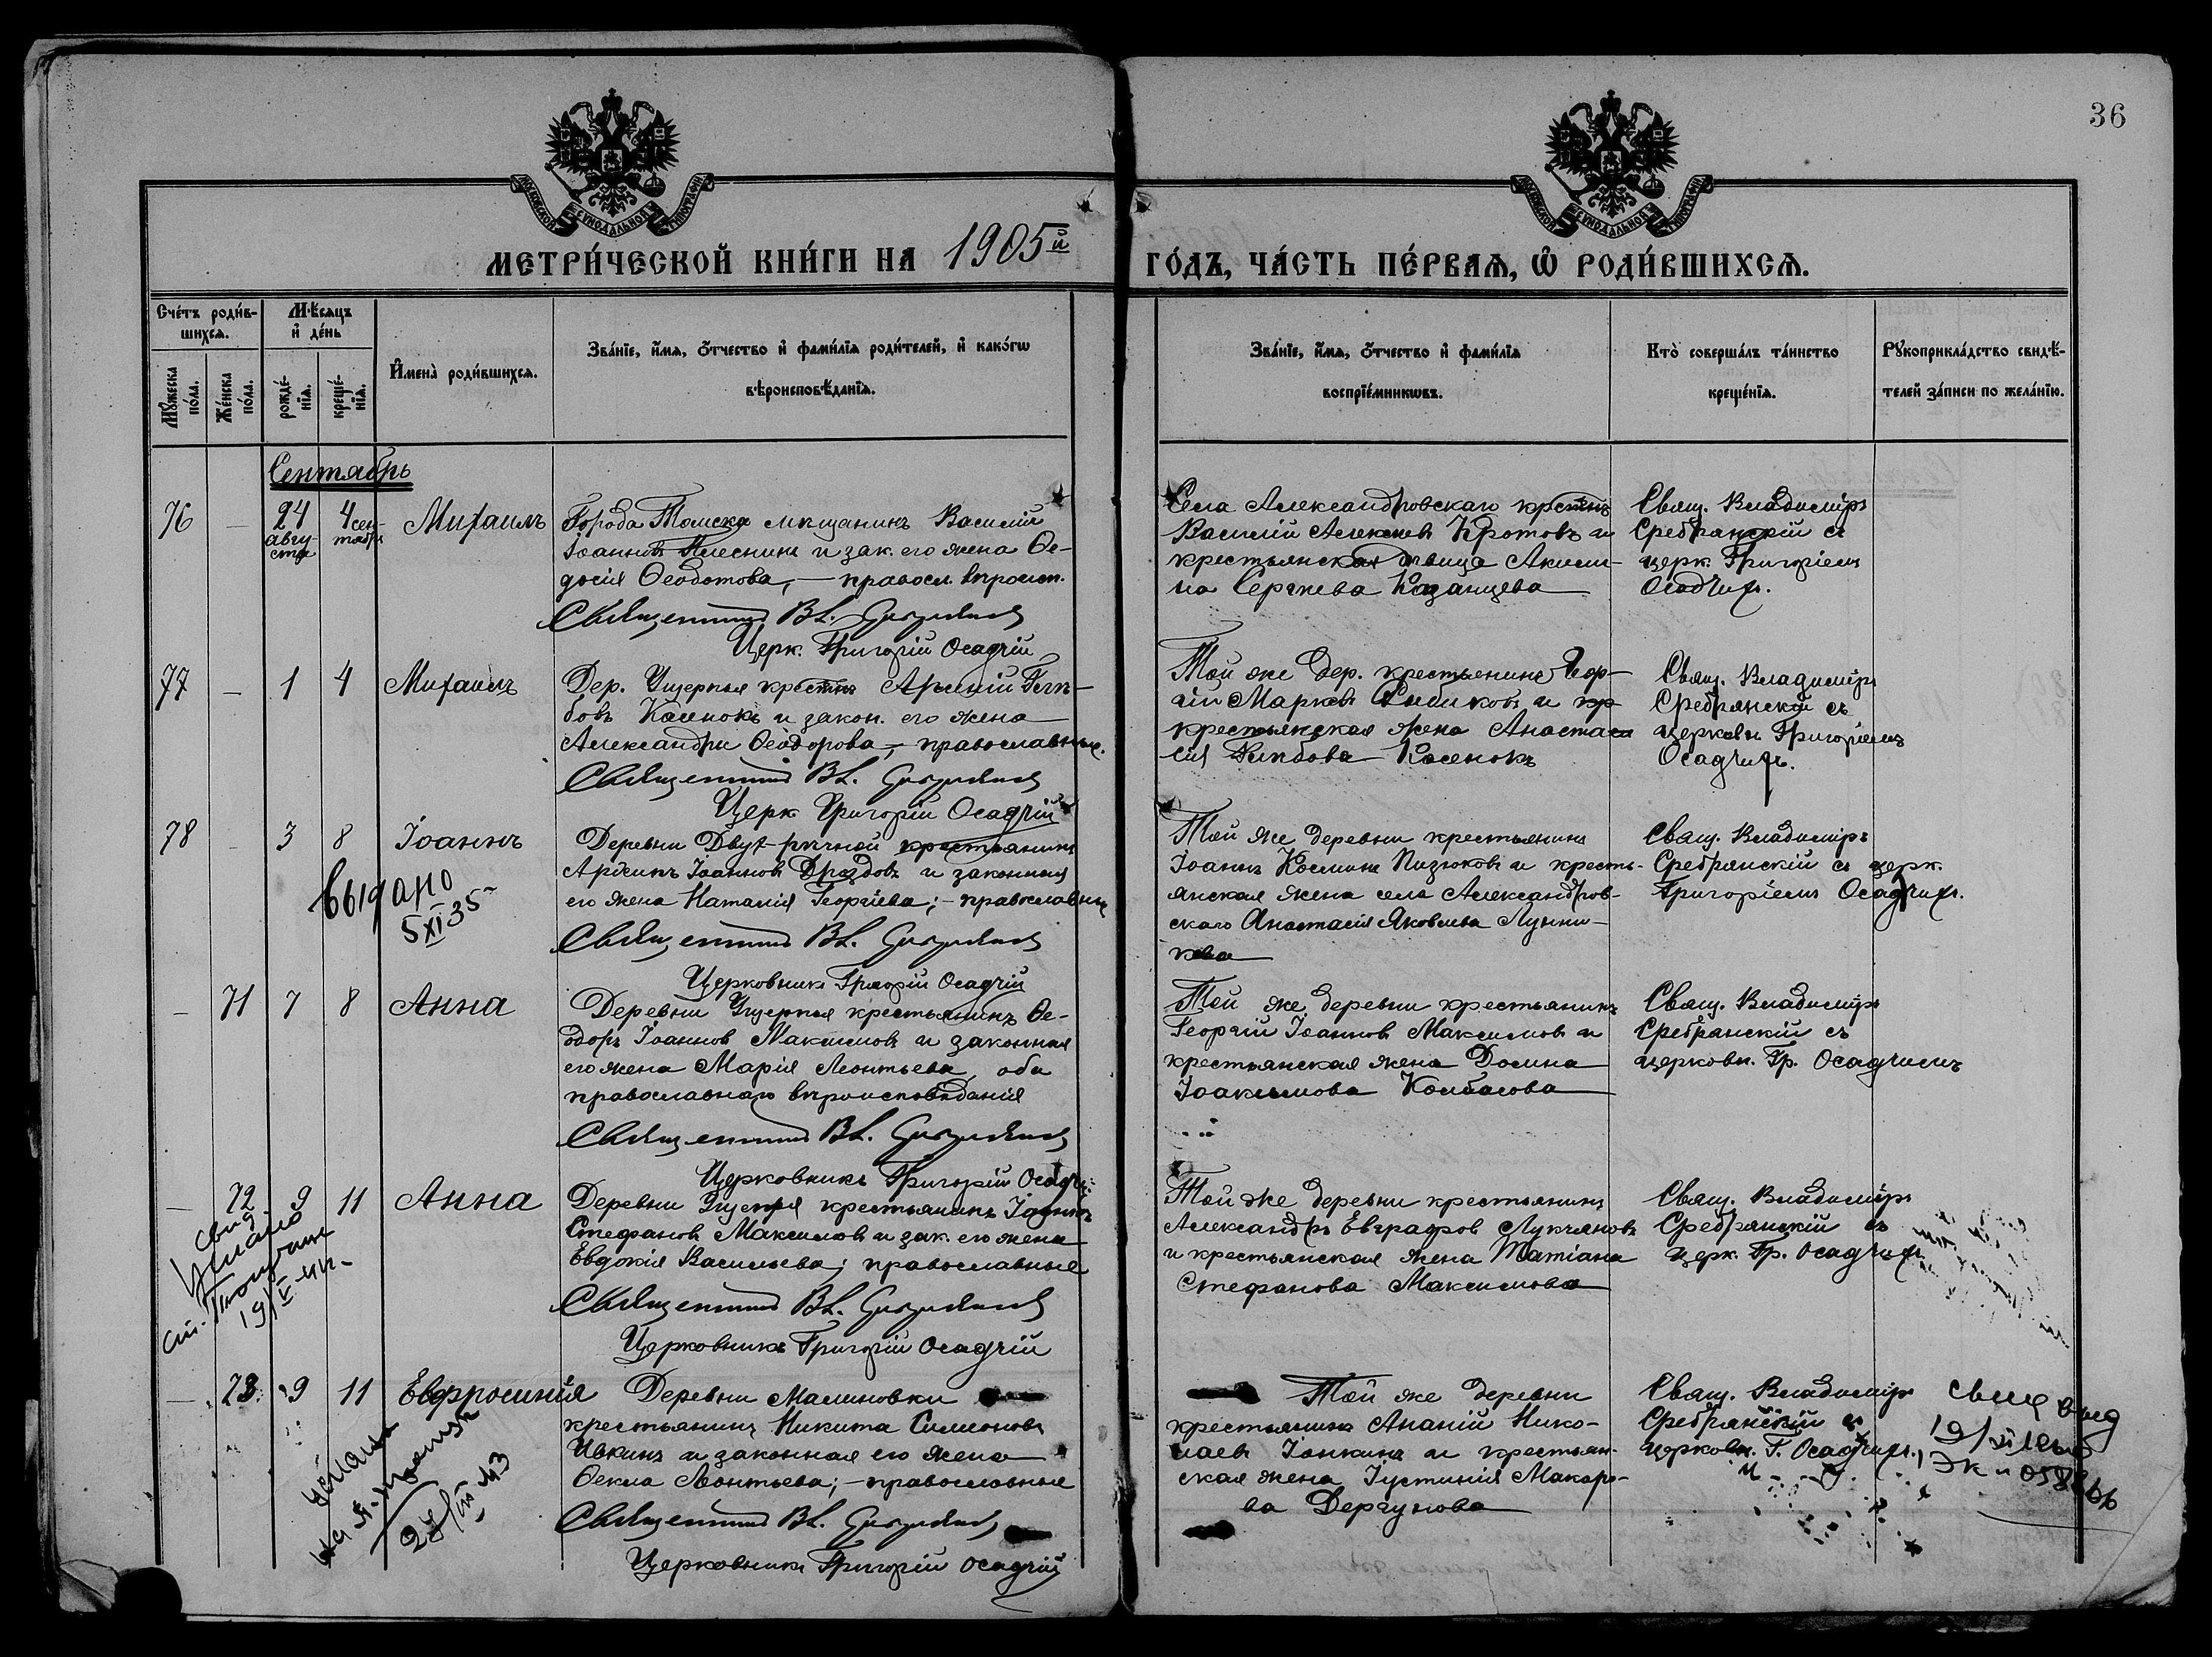 36
МОСКОВСКОЙ СѴНОДАЛЬНОЙ ТИПОГРАФІИ
МОСКОВСКОЙ СѴНОДАЛЬНОЙ ТИПОГРАФІИ
МЕТРИ́ЧЕСКОЙ КНИ́ГИ НА 1905й ГО́ДЪ, ЧА́СТЬ ПЕ́РВАѦ, Ѽ РОДИ́ВШИХСѦ.
Сче́тъ роди́в-
шихсѧ.
Мѣ́сѧцъ
и҆ де́нь
Мꙋ́жеска по́ла.
Же́нска по́ла.
рожде́-
нїѧ.
креще́-
нїѧ.
И҆мена̀ роди́вшихсѧ.
Зва́нїе, и҆́мѧ, ѻ҆́тчество и҆ фами́лїѧ роди́телей, и҆ како́гѡ
вѣроисповѣ́данїѧ.
Зва́нїе, и҆́мѧ, ѻ҆́тчество и҆ фами́лїѧ
воспрїе́мникѡвъ.
Кто̀ соверша́лъ та́инство
креще́нїѧ.
Рꙋкоприкла́дство свидѣ́-
телей за́писи по жела́нїю.
Сентябрь
76 — 24 авгу-
ста 4 сен-
тября Михаилъ
Города Томска мѣщанинъ Василій
Іоанновъ Плеснинъ и зак. его жена Ѳе-
досія Ѳеодотова, — правосл. вѣроисп.
Священникъ Вл.
Церк. Григорій Осадчій
Села Александровскаго крестнъ
Василій Алексѣевъ Кротовъ и
крестьянская дѣвица Акили-
на Сергѣева Казанцева
Свящ. Владиміръ
Сребрянскій съ
церк. Григоріемъ
Осадчимъ.
77 — 1 4 Михаилъ
Дер. Ущерпья крестнъ Арсеній Глѣ-
бовъ Касенокъ и закон. его жена
Александра Ѳеодорова, — православные.
Священникъ Вл.
Церк Григорій Осадчій
Той же дер. крестьянинъ Геор-
гій Марковъ Бибиковъ и кр
крестьянская жена Анаста
сія Глѣбова Касенокъ
Свящ. Владиміръ
Сребрянскій съ
церковн Григоріемъ
Осадчимъ.
78 3 8 Іоаннъ
Деревни Двух-рѣчной крестьянинъ
Іоанновъ Дроздовъ и законная
его жена Наталія Георгіева; — православные
Священникъ Вл.
Церковникъ Григорій Осадчій
Той же деревни крестьянинъ
Іоаннъ Косминъ Пизюковъ и кресть-
янская жена села Александров-
скаго Анастасія Яковлева Лунни-
кова
Свящ. Владиміръ
Сребрянскій съ церк.
Григоріемъ Осадчимъ.
выдано
5 XI 35
— 71 7 8 Анна
Деревни Ущерпья крестьянинъ Ѳе-
одоръ Іоанновъ Максимовъ и законная
его жена Марія Леонтьева, оба
православнаго вѣроисповѣданія
Священникъ Вл.
Церковникъ Григорій Осадчій
Той же деревни крестьянинъ
Георгій Іоанновъ Максимовъ и
крестьянская жена Домна
Іоакимова Колбасова
Свящ. Владиміръ
Сребрянскій съ
церковн. Гр. Осадчимъ
— 72 9 11 Анна
Деревни Ущерпья крестьянинъ Іоаннъ
Стефановъ Максимовъ и зак. его жена
Евдокія Васильева; православные
Священникъ Вл.
Церковникъ Григорій Осадчій
Той же деревни крестьянинъ
Александръ Евграфовъ Лукьяновъ
и крестьянская жена Татіана
Стефанова Максимова
Свящ. Владиміръ
Сребрянскій съ
церк. Гр. Осадчимъ
— 73 9 11 Евфросинія
Деревни Малиновки
крестьянинъ Никита Симеоновъ
Ивкинъ и законная его жена
Ѳекла Леонтьева; — православные
Священникъ Вл.
Церковникъ Григорій Осадчій
Той же деревни
крестьянинъ Ананій Нико-
лаевъ Іонкинъ и крестьян-
ская жена Іустинія Макаро-
ва Дергунова
Свящ. Владиміръ
Сребрянскій съ
церковн. Г. Осадчимъ.